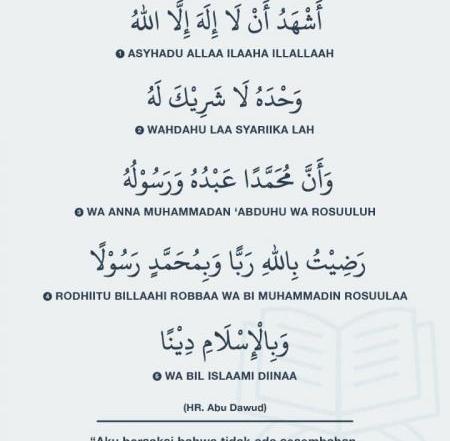 أَشْهَدُ أَنْ لَا إِلَهَ إِلَّا اللهُ
❶ ASYHADU ALLAA ILAAHA ILLALLAAH
وَحْدَهُ لَا شَرِيْكَ لَهُ
❷ WAHDAHU LAA SYARIIKA LAH
وَأَنَّ مُحَمَّدًا عَبْدُهُ وَرَسُوْلُهُ
❸ WA ANNA MUHAMMADAN ‘ABDUHU WA ROSUULUH
رَضِيْتُ بِاللهِ رَبًّا وَبِمُحَمَّدٍ رَسُوْلًا
❹ RODHIITU BILLAAHI ROBBAA WA BI MUHAMMADIN ROSUULAA
وَبِالْإِسْلَامِ دِيْنًا
❺ WA BIL ISLAAMI DIINAA
(HR. Abu Dawud)
“Aku bersaksi bahwa tidak ada sesembahan